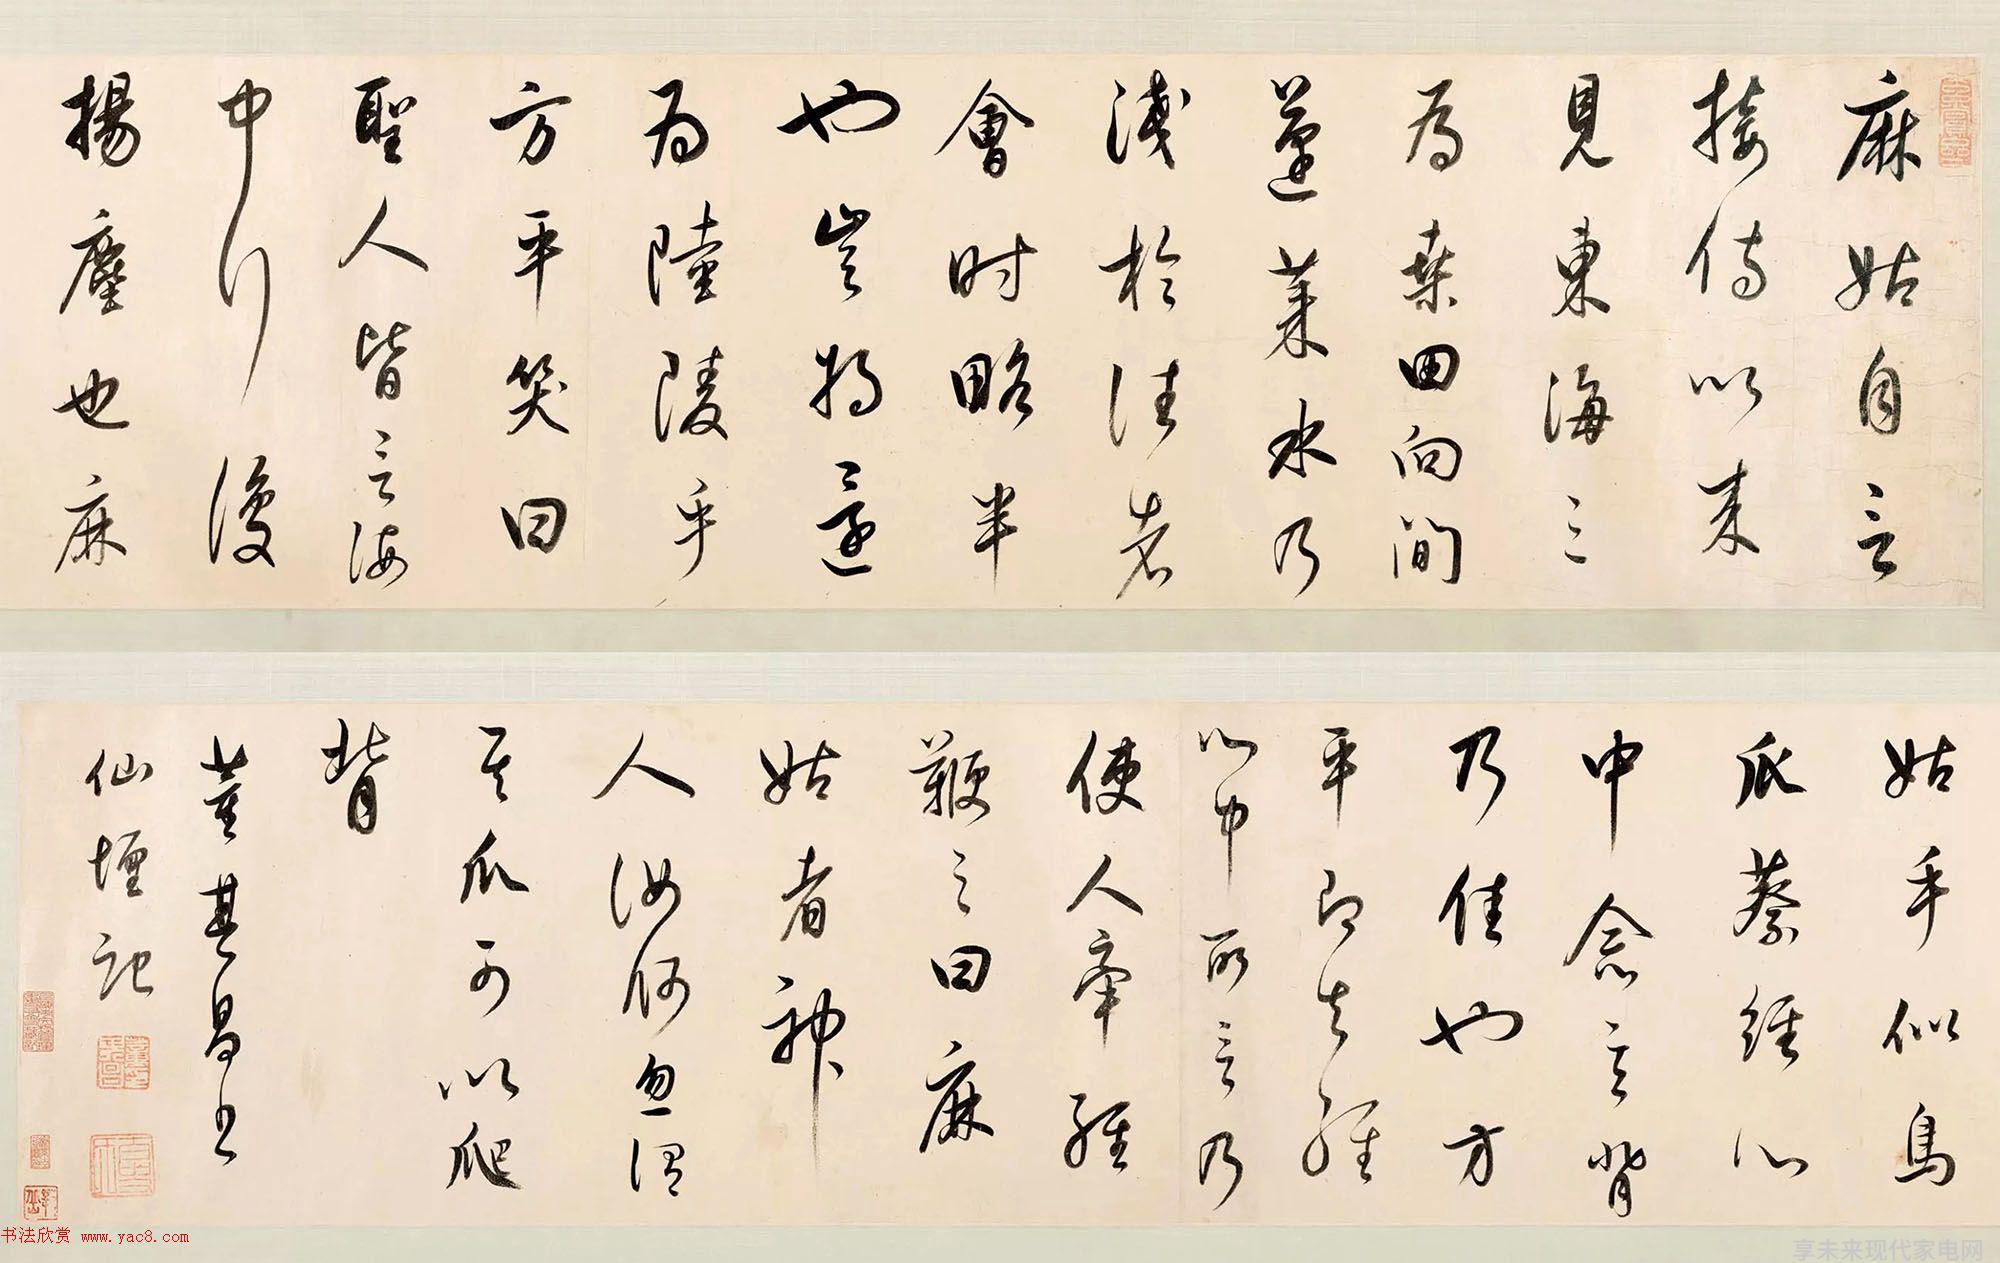 麻姑自言
接侍以来
見東海三
為桑田向間
蓬莱水乃
淺於往者
會时略半
也豈将還
為陸陵乎
方平笑曰
聖人皆言海
中行復
揚塵也麻
姑手似鳥
爪蔡經心
中念言背
乃佳也方
平即知經
心中所言乃
使人牽經
鞭之曰麻
姑者神
人汝何忽謂
其爪可以爬
背
董其昌书
仙壇記
书法欣赏 www.yac8.com
享未来现代家电网